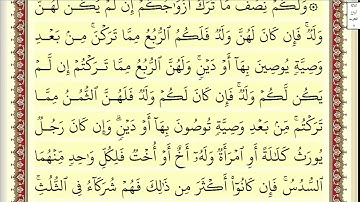 ۞ وَلَكُمْ نِصْفُ مَا تَرَكَ أَزْوَٰجُكُمْ إِن لَّمْ يَكُن لَّهُنَّ
وَلَدٌ ۚ فَإِن كَانَ لَهُنَّ وَلَدٌ فَلَكُمُ ٱلرُّبُعُ مِمَّا تَرَكْنَ ۚ مِنۢ بَعْدِ
وَصِيَّةٍ يُوصِينَ بِهَآ أَوْ دَيْنٍ ۚ وَلَهُنَّ ٱلرُّبُعُ مِمَّا تَرَكْتُمْ إِن لَّمْ
يَكُن لَّكُمْ وَلَدٌ ۚ فَإِن كَانَ لَكُمْ وَلَدٌ فَلَهُنَّ ٱلثُّمُنُ مِمَّا
تَرَكْتُم ۚ مِّنۢ بَعْدِ وَصِيَّةٍ تُوصُونَ بِهَآ أَوْ دَيْنٍ ۗ وَإِن كَانَ رَجُلٌ
يُورَثُ كَلَٰلَةً أَوِ ٱمْرَأَةٌ وَلَهُۥٓ أَخٌ أَوْ أُخْتٌ فَلِكُلِّ وَٰحِدٍ مِّنْهُمَا
ٱلسُّدُسُ ۚ فَإِن كَانُوٓا۟ أَكْثَرَ مِن ذَٰلِكَ فَهُمْ شُرَكَآءُ فِى ٱلثُّلُثِ ۚ